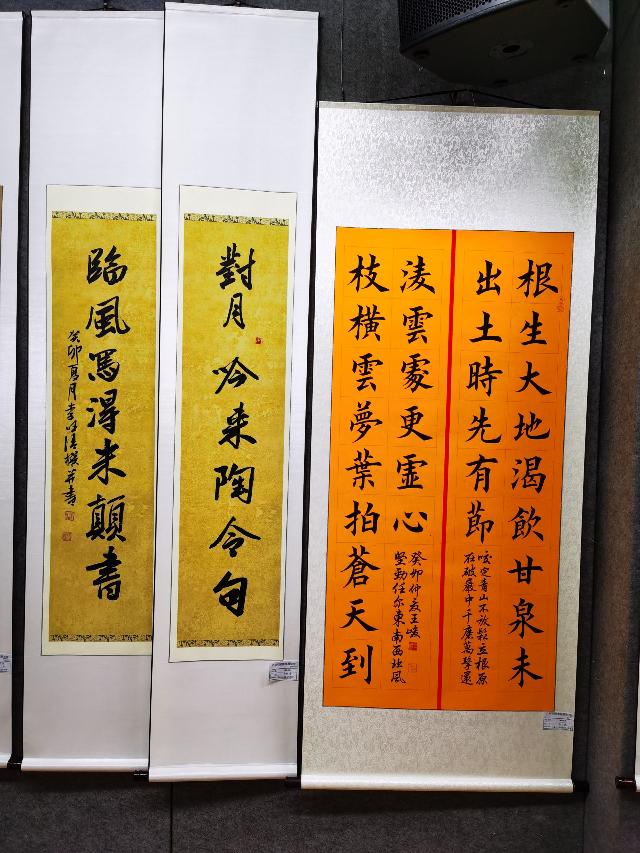 根生大地渴飲甘泉未
出土時先有節
咬定青山不放鬆立根原
在破巖中千磨萬擊還
枝橫雲夢葉拍蒼天到
淩雲處更虛心
堅勁任尔東南西北風
癸卯仲夏王峻
對月吟来陶令句
臨風寫得米顛書
癸卯夏月李 清撰并書